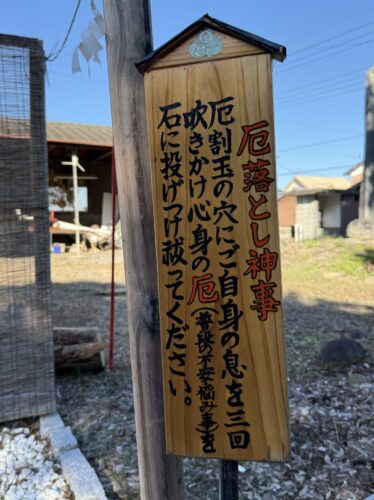 厄落とし神事
厄割玉の穴にご自身の息を三回
吹きかけ心身の厄(普段の不安・悩み事)を
石に投げつけ祓ってください。